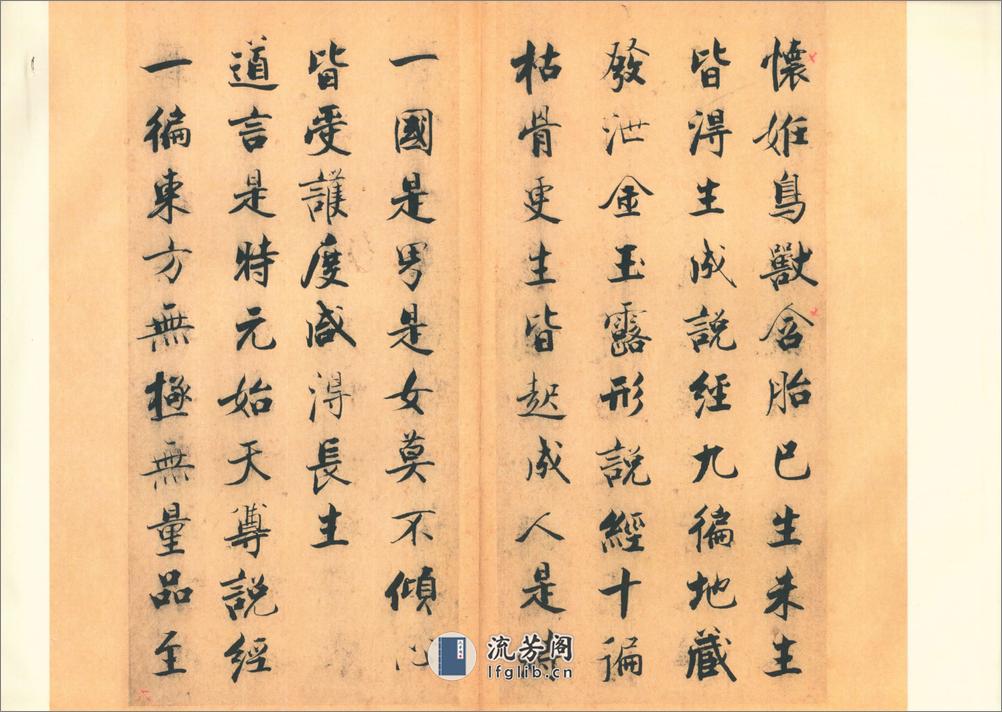 懷妊鳥獸含胎已生未生
皆得生成說經九徧地藏
發泄金玉露形說經十徧
枯骨更生皆起成人是時
一國是男是女莫不傾心
皆受護度咸得長生
道言是時元始天尊說經
一徧東方無極無量品至
流芳阁
lfglib.cn